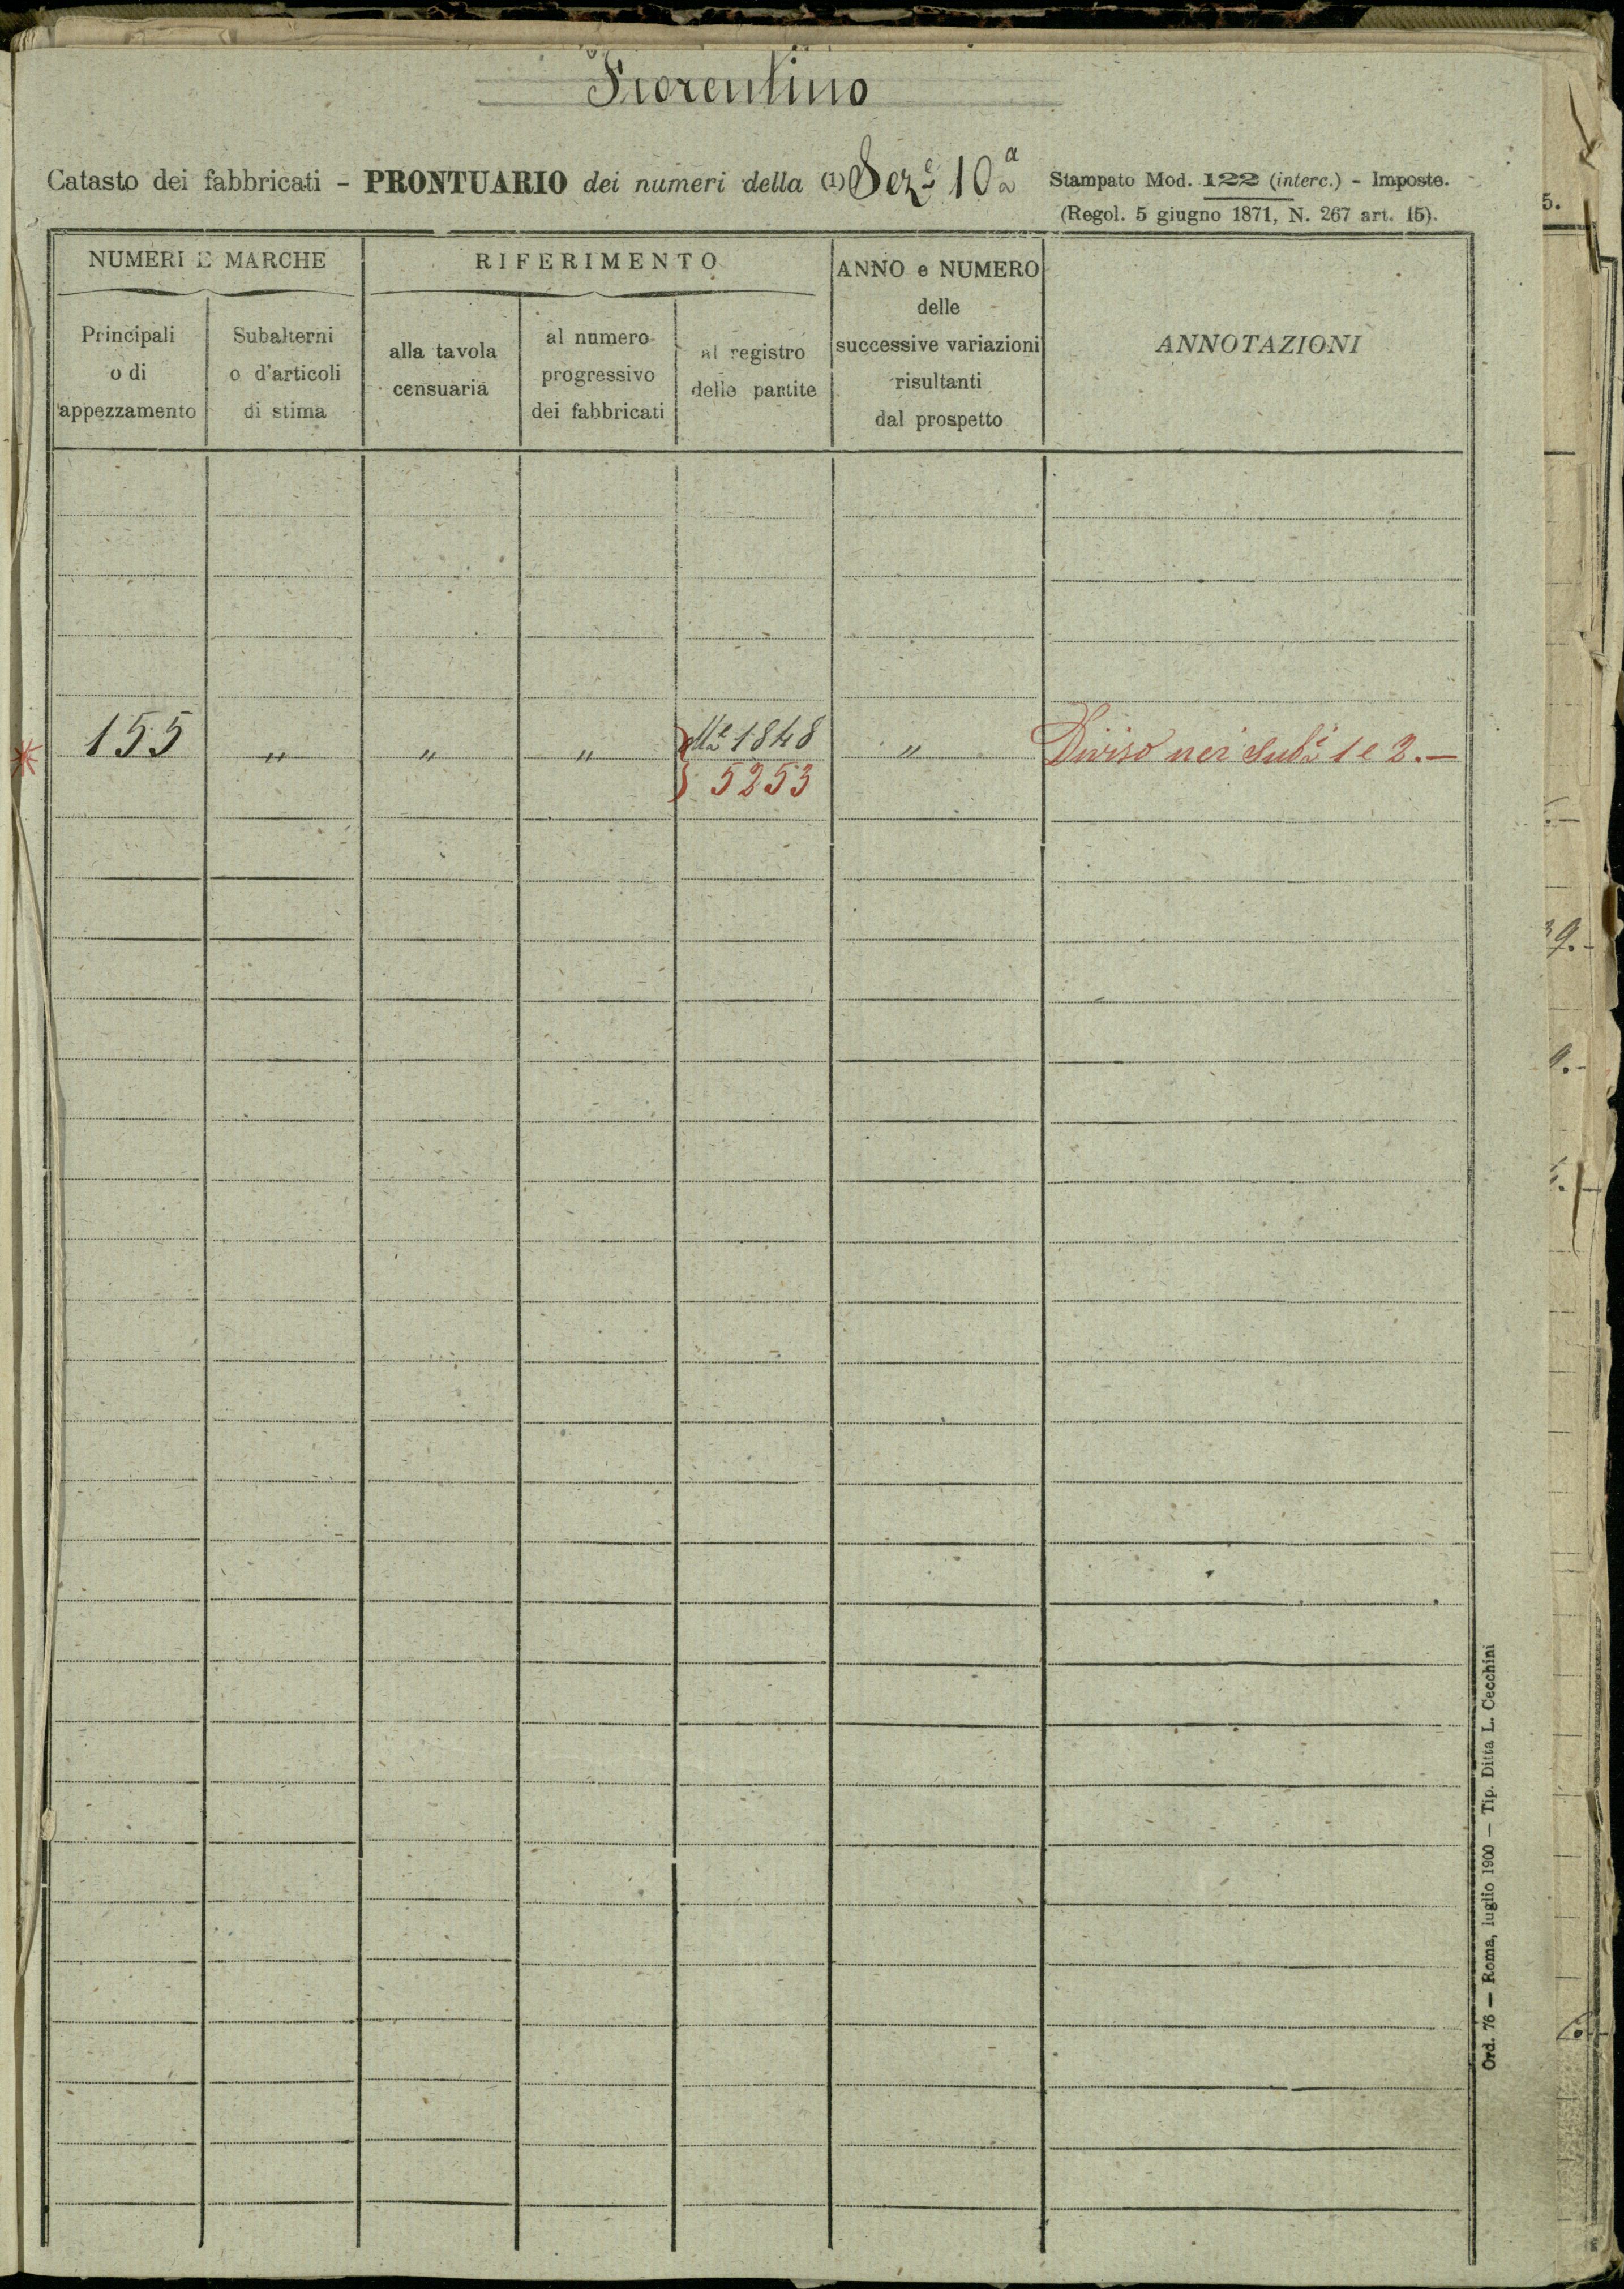 Fiorentino
Catasto dei fabbricati - PRONTUARIO dei numeri della (1) Sez.e 10a
Stampato Mod. 122 (interc.) - Imposte.
(Regol. 5 giugno 1871, N. 267 art. 15).
NUMERI E MARCHE
RIFERIMENTO
ANNO e NUMERO
delle
successive variazioni
risultanti
dal prospetto
ANNOTAZIONI
Principali
o di
appezzamento
Subalterni
o d'articoli
di stima
alla tavola
censuaria
al numero
progressivo
dei fabbricati
al registro
delle partite
155 " " " 1848 " Diviso nei Sub.i 1 e 2.—
5253
Ord. 76 — Roma, luglio 1900 — Tip. Ditta L. Cecchini